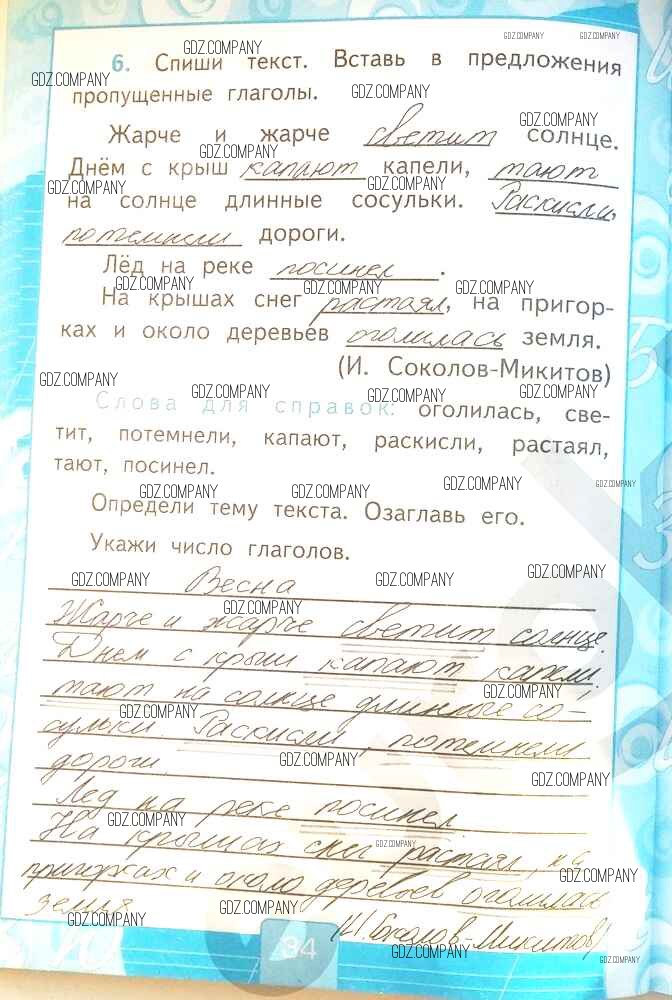 6. Спиши текст. Вставь в предложения
пропущенные глаголы.
Жарче и жарче светит солнце.
Днём с крыш капают капели, тают
на солнце длинные сосульки. Раскисли,
потемнели дороги.
Лёд на реке посинел.
На крышах снег растаял, на пригор-
ках и около деревьев оголилась земля.
(И. Соколов-Микитов)
Слова для справок: оголилась, све-
тит, потемнели, капают, раскисли, растаял,
тают, посинел.
Определи тему текста. Озаглавь его.
Укажи число глаголов.
Весна
Жарче и жарче светит солнце.
Днем с крыш капают капели,
тают на солнце длинные со-
сульки. Раскисли, потемнели
дороги.
Лед на реке посинел.
На крышах снег растаял, на
пригорках и около деревьев оголилась
земля
(И. Соколов-Микитов)
34
GDZ.COMPANY